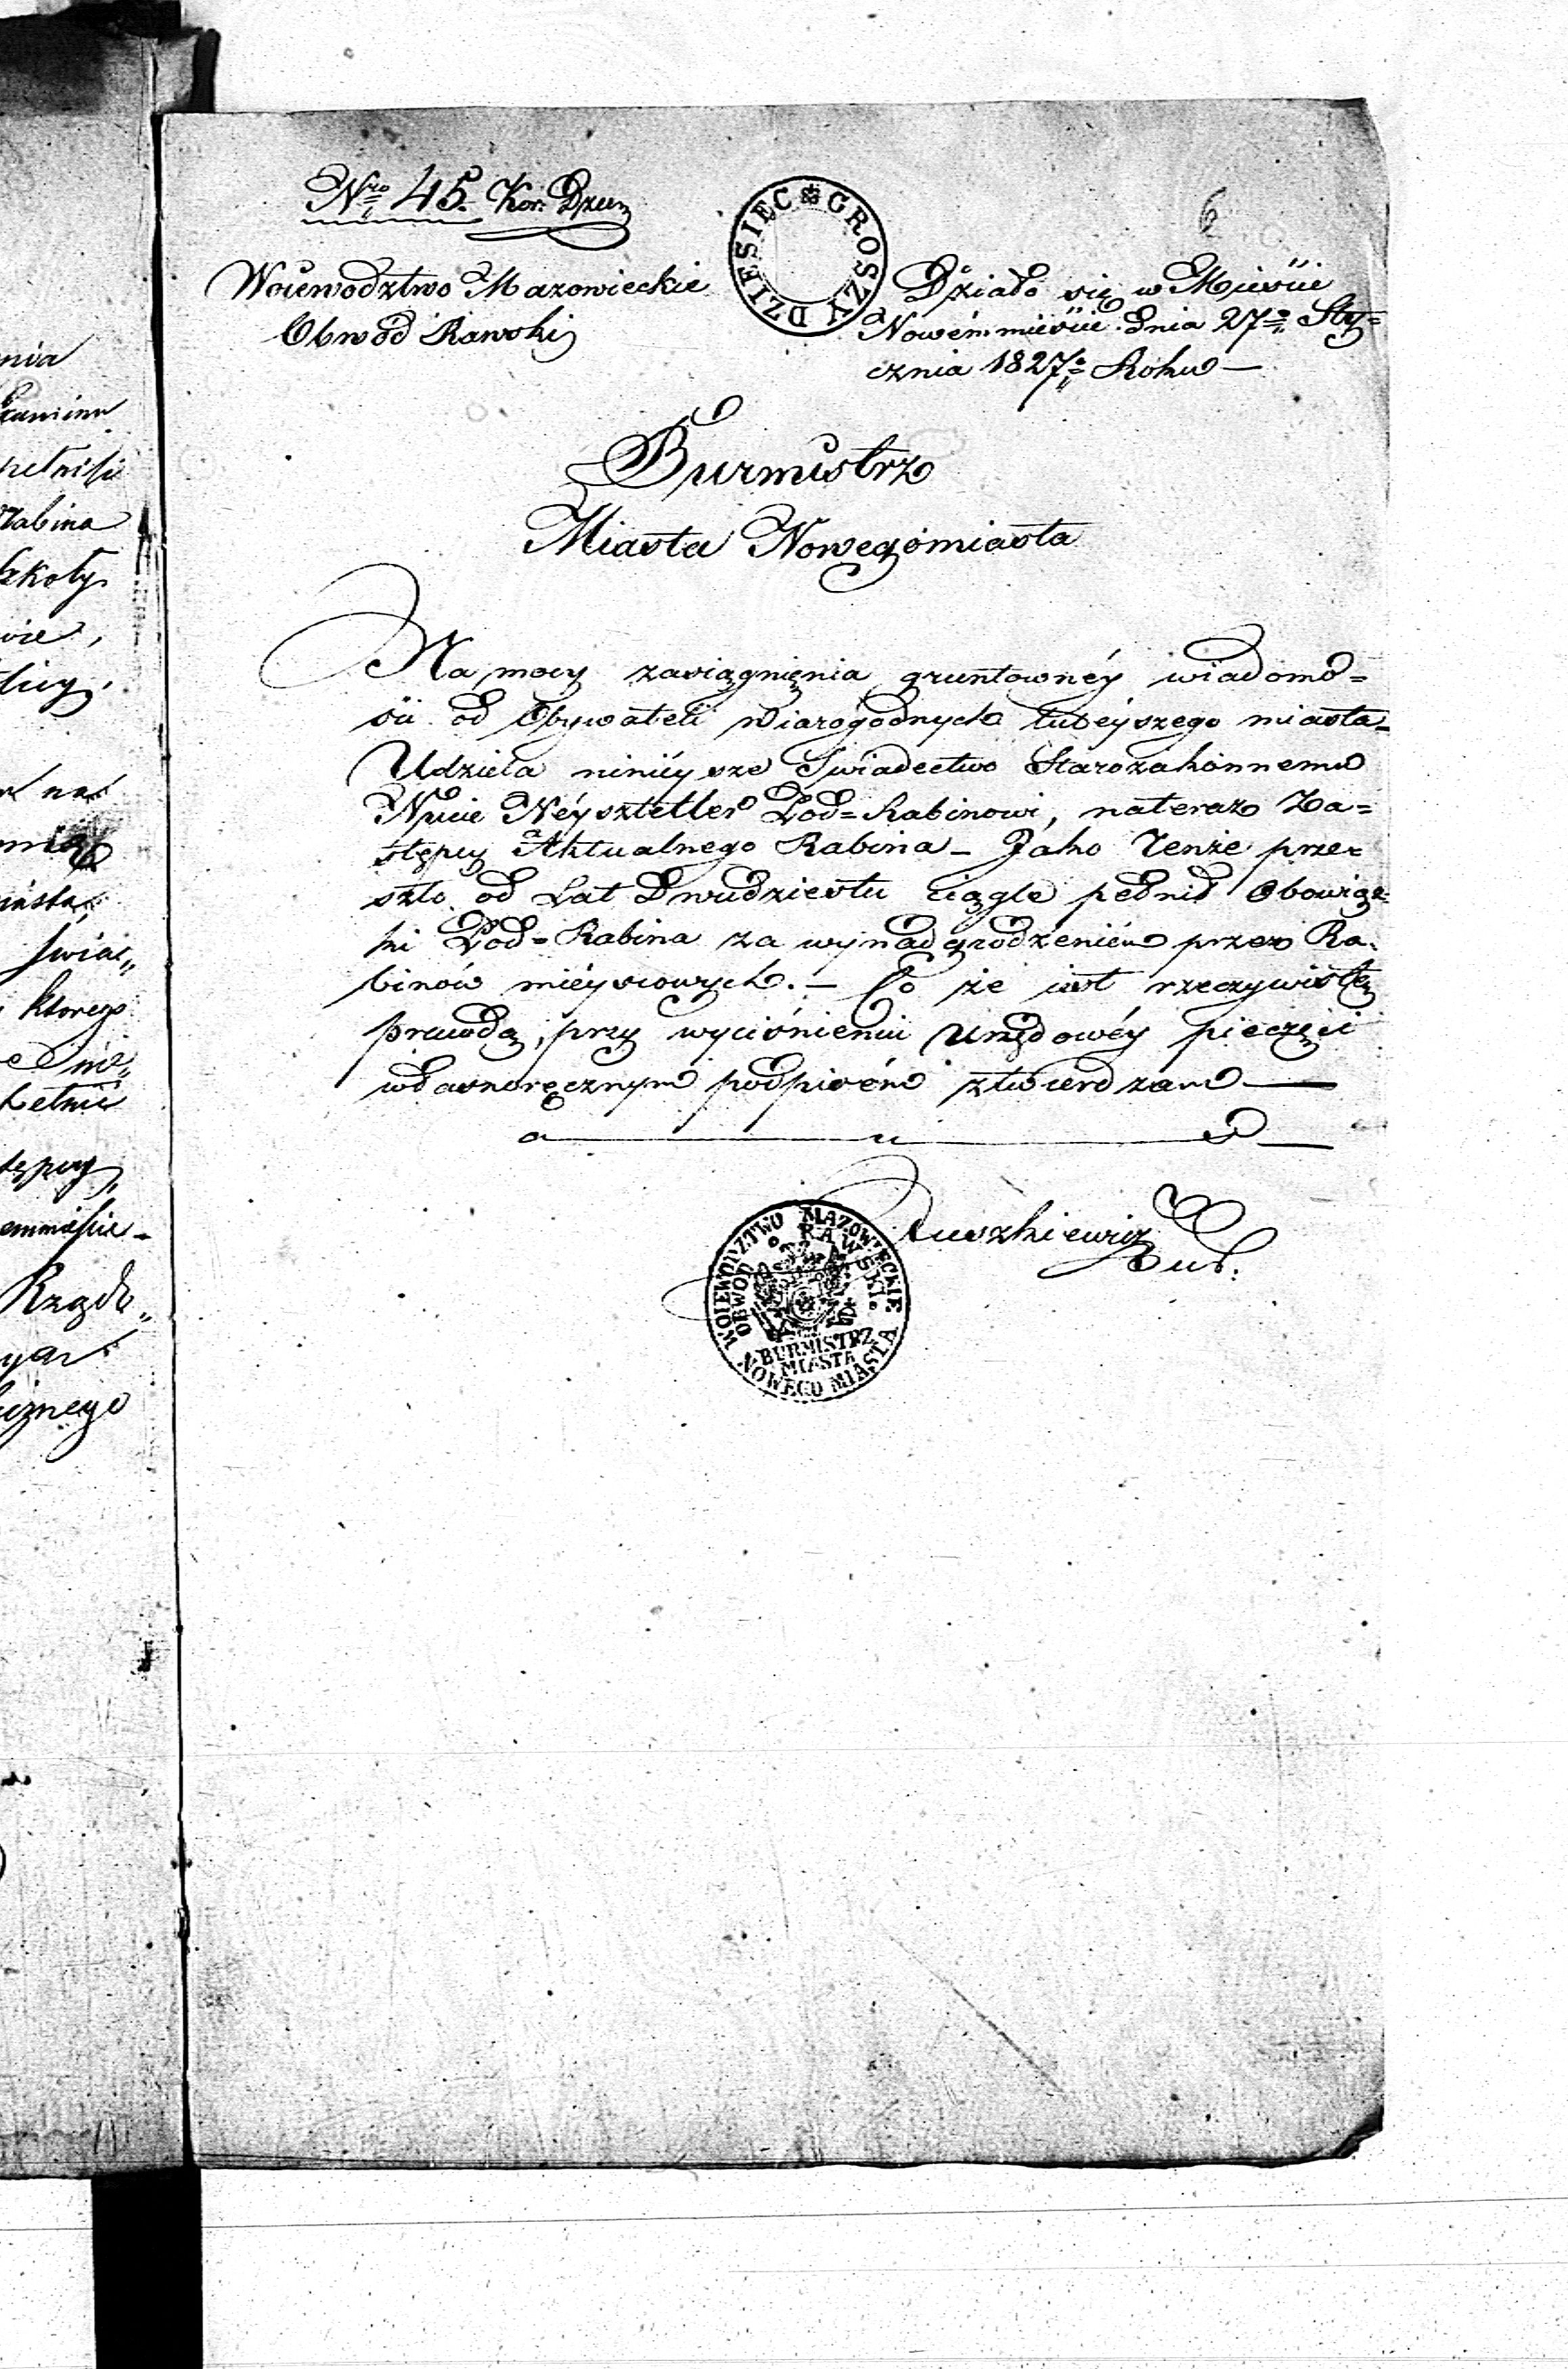 Nro 45. Kor: Dzien
DZIESIĘC GROSZY
6
Woiewodztwo Mazowieckie
Obwód Rawski
Działo się w Mieście
Nowémmieście dnia 27o Sty=
cznia 1827o Roku —
Burmistrz
Miasta Nowegomiasta
Na mocy zasiągnięnia gruntownéy wiadomo=
ści od Obywateli Wiarogodnych tuteyszego miasta
Udziela ninieysze Swiadectwo Starozakonnemu
Neysztetler Pod=Rabinowi, nateraz Za=
stępcy Aktualnego Rabina – Jako Tenże prze=
szło od Lat Dwudziestu ciągle pełnił Obowiąz=
ki Pod=Rabina za wynadgrodzeniem przez Ra=
binów mieyscowych. – Co że iest rzeczywistą
prawdą, przy wyciśnieniu Urzędowéy pieczęci
własnoręcznym podpisem ztwierdzam —
WOIEWODZTWO MAZOWIECKIE
OBWOD RAWSKI
BURMISTRZ
MIASTA
NOWEGO MIASTA
nia
Rabina
Szkoły
wie,
na
miasta,
Swiad„
ktorego
stępcy,
Rządo„
cznego